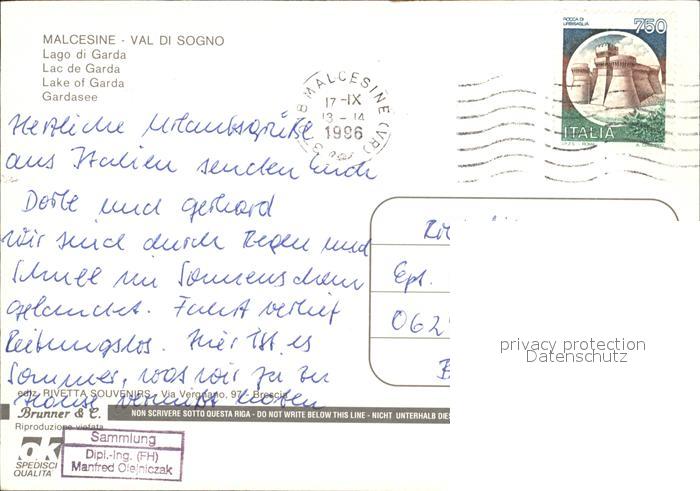 MALCESINE - VAL DI SOGNO
Lago di Garda
Lac de Garda
Lake of Garda
Gardasee
MALCESINE (VR)
17-IX
13-14
1996
ROCCA DI URBISAGLIA
750
ITALIA
Herzliche Urlaubsgrüße
aus Italien senden Euch
Dorle und Gerhard
Wir sind durch Regen und
Schnee im Sonnenschein
gelandet. Fahrt verlief
Reibungslos. Hier ist es
Sommer, was wir zu
Hause vermißt haben
Ept.
062
B
privacy protection
Datenschutz
ediz. RIVETTA SOUVENIRS - Via Vergnano, 97 - Brescia
Brunner & C. NON SCRIVERE SOTTO QUESTA RIGA - DO NOT WRITE BELOW THIS LINE - NICHT UNTERHALB DIES
Riproduzione vietata
ok
SPEDISCI
QUALITÀ
Sammlung
Dipl.-Ing. (FH)
Manfred Olejniczak